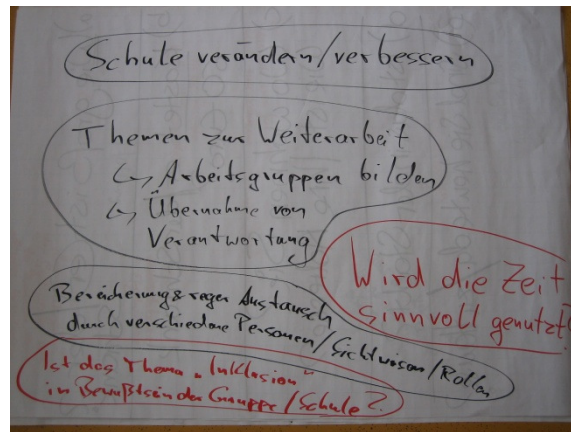 Schule verändern/verbessern
Themen zur Weiterarbeit
↳ Arbeitsgruppen bilden
↳ Übernahme von
Verantwortung
Wird die Zeit
sinnvoll genutzt?
Bereicherung & reger Austausch
durch verschiedene Personen/Sichtweisen/Rollen
Ist das Thema „Inklusion"
in Bewußtsein der Gruppe/Schule?